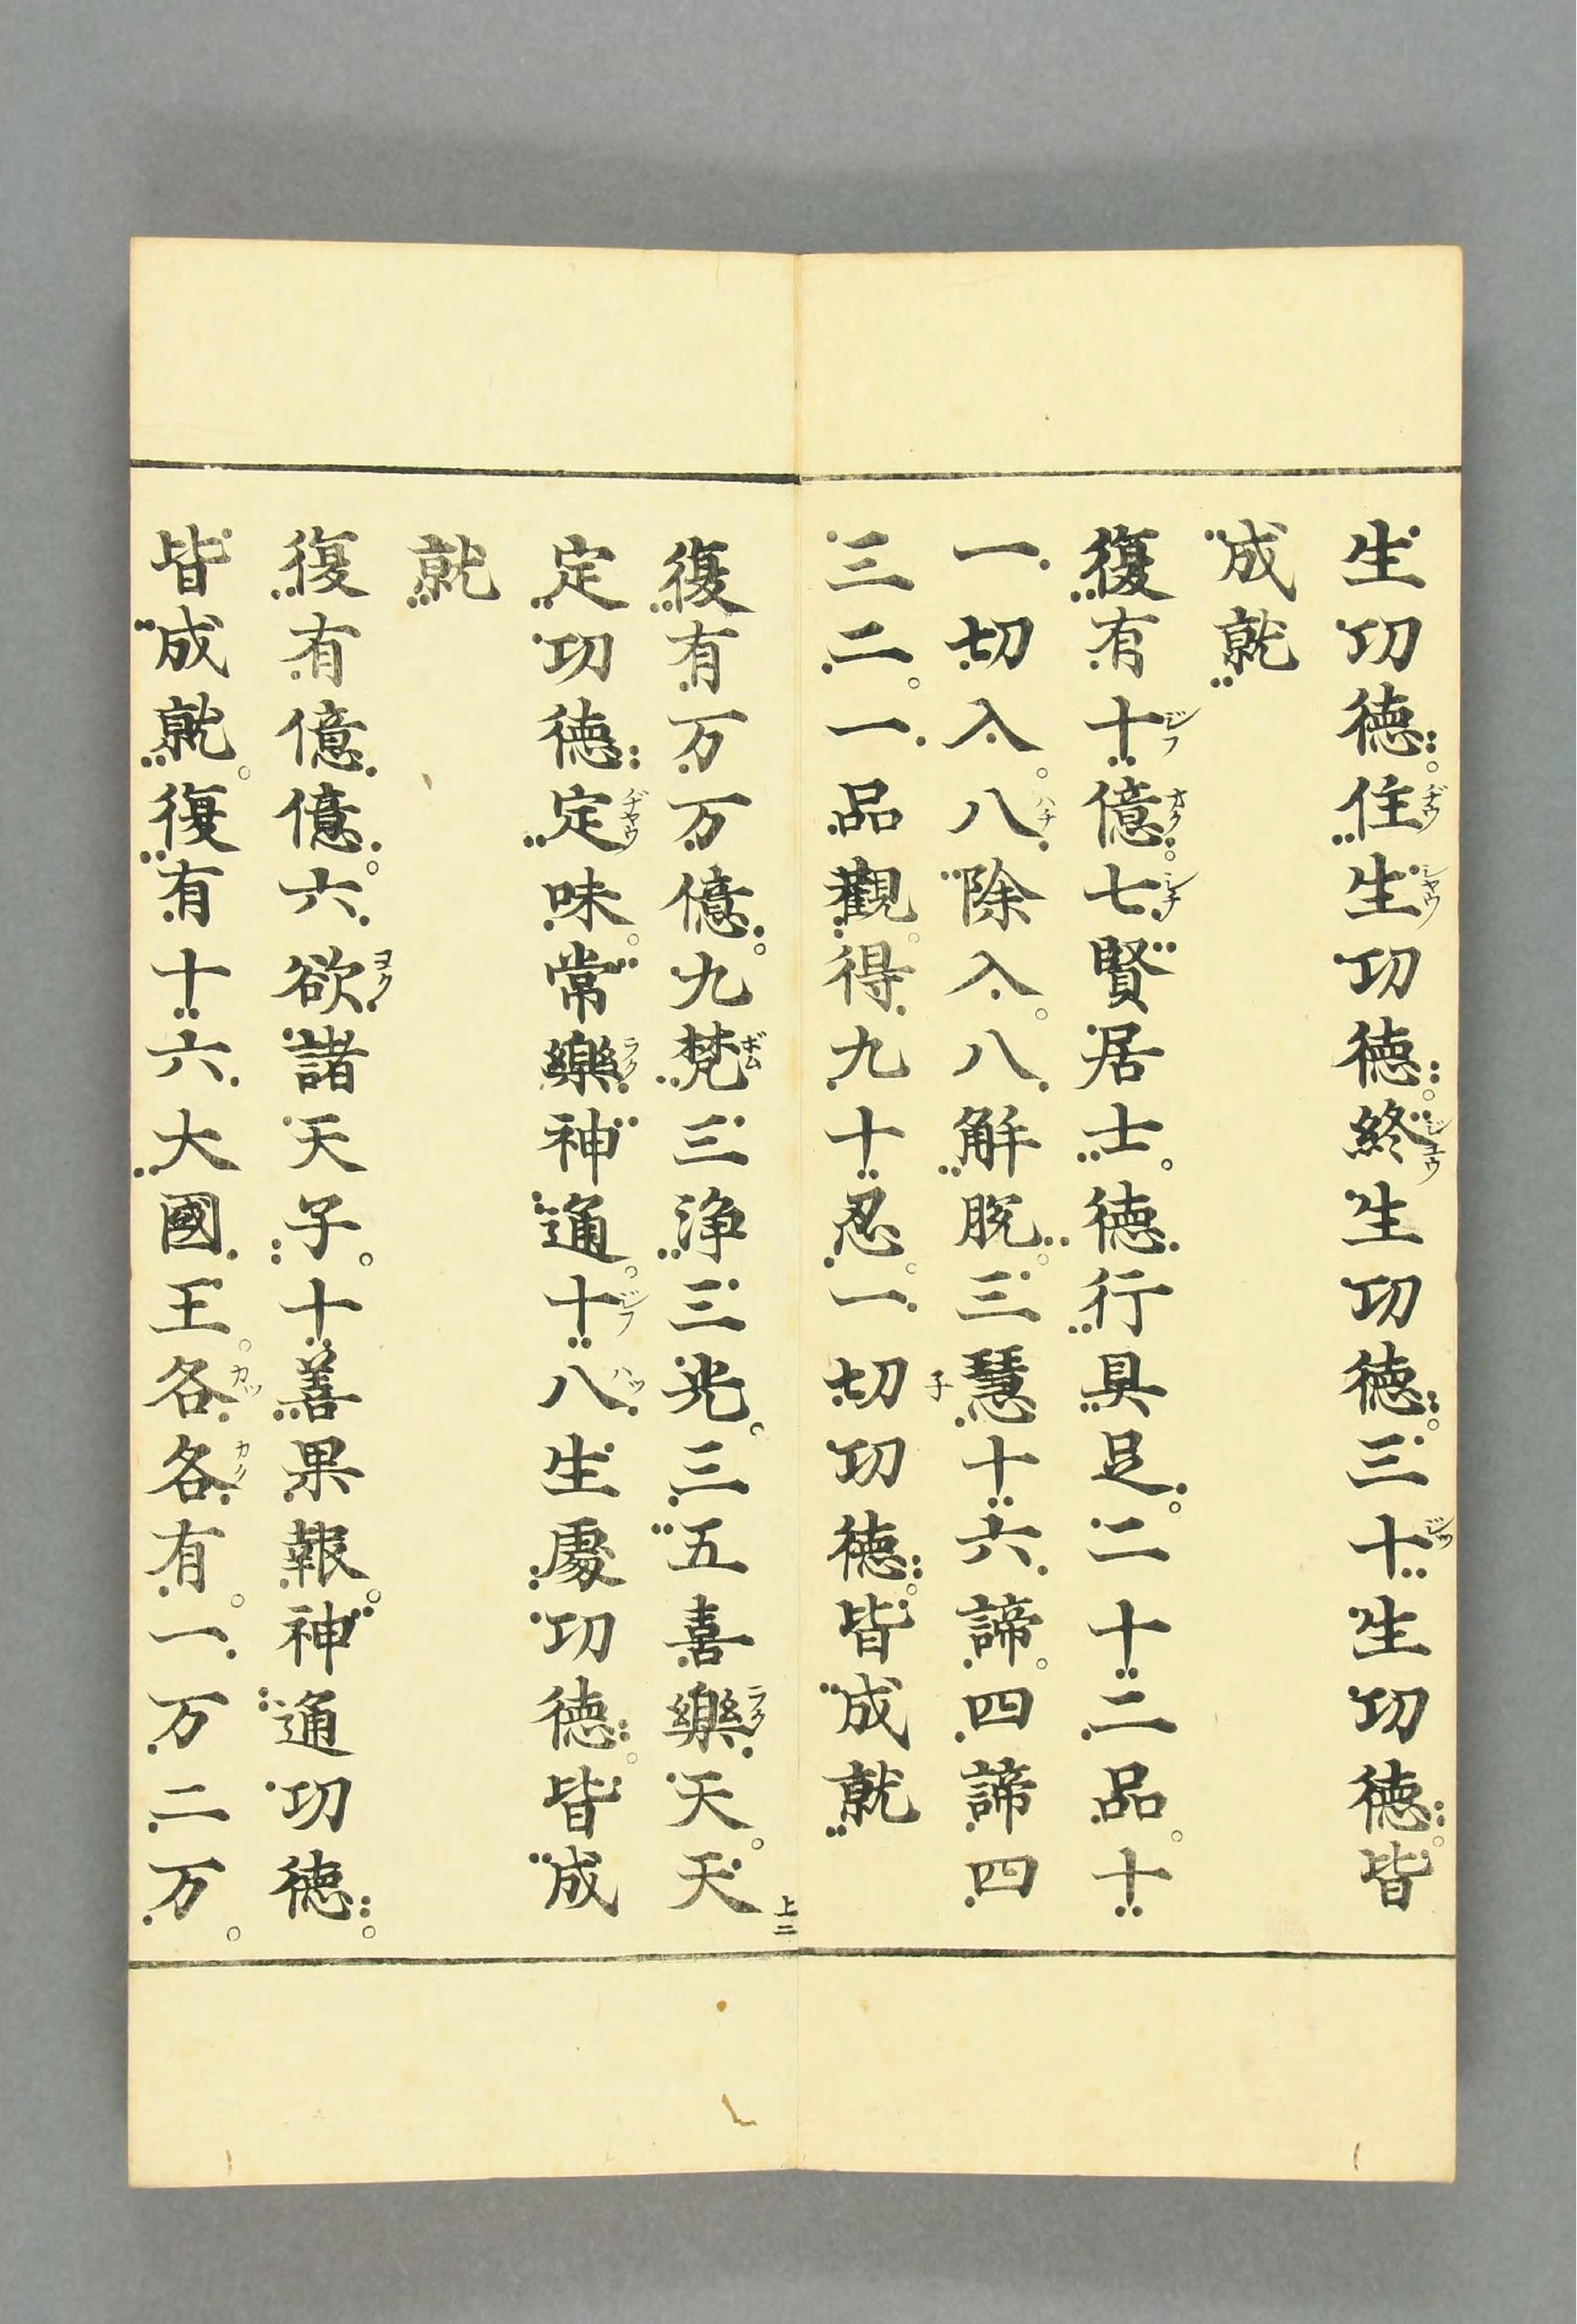 生功德住生功德終生生功德三十生功德皆
成就
復有十億七賢居士德行具足二十二品十
一切入八除入八解脫三慧十六諦四諦四
三二一品觀得九十忍一切功德皆成就
復有万万億九梵三淨三光三五喜樂天天
定功德定味常樂神通十八生處功德皆成
就
復有億億六欲諸天子十善果報神通功德
皆成就復有十六大國王各各有一万二万
上二